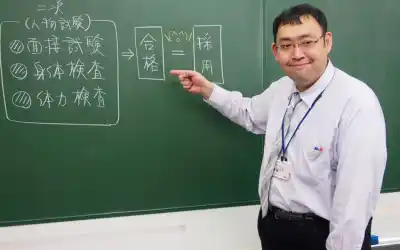 二次
(人物試験)
◎面接試験
◎身体検査
◎体力検査
→
合格
=
採用